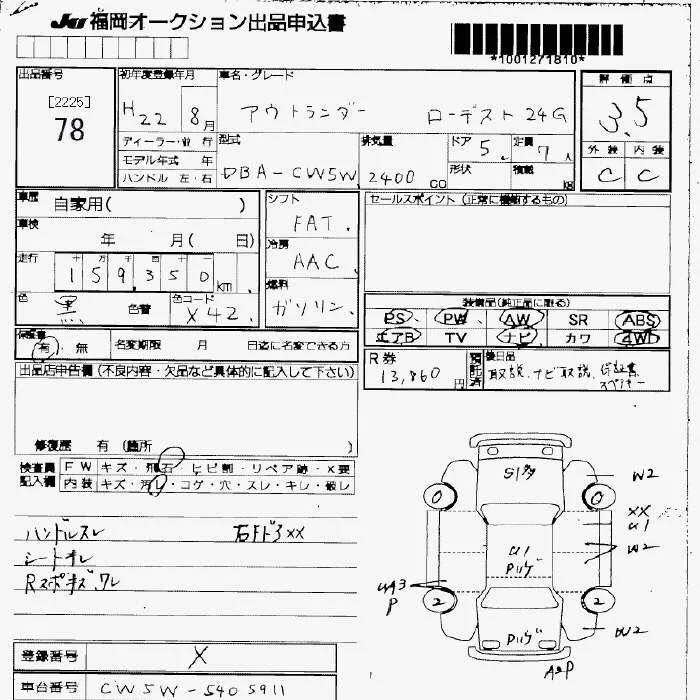 JU 福岡オークション出品申込書
*1001271810*
出品番号
[2225]
78
初年度登録年月
H22 8月
車名・グレード
アウトランダー ローデスト24G
評価点
3.5
外装 内装
C C
ディーラー・並行
モデル年式 年
ハンドル 左・右
型式
DBA-CW5W
排気量
2400 CC
ドア
5
定員
7人
形状
積載
kg
車歴 自家用( )
車検
年 月( 日)
走行
十 万 千 百 十
159,350 km
色 黒 色替
色コード
X42
シフト
FAT
冷房
AAC
燃料
ガソリン
セールスポイント (正常に機能するもの)
装備品(純正品に限る)
PS PW AW SR ABS
エアB TV ナビ カワ 4WD
保証書
有・無
名変期限 月 日迄に名変できる方
R券
13,860円
預託済
後日品
取説、ナビ取説、保証書
スペアキー
出品店申告欄 (不良内容・欠品など具体的に記入して下さい)
修復歴 有 (箇所 )
検査員
記入欄
FW キズ・飛石・ヒビ割・リペア跡・X要
内装 キズ・汚レ・コゲ・穴・スレ・キレ・破レ
ハンドルスレ
シート
Rスポ
XX
登録番号 X
車台番号 CW5W-5405911
W2
XX
U1
W2
W2
A2P
P
UA3
P
U1
0
0
2
2